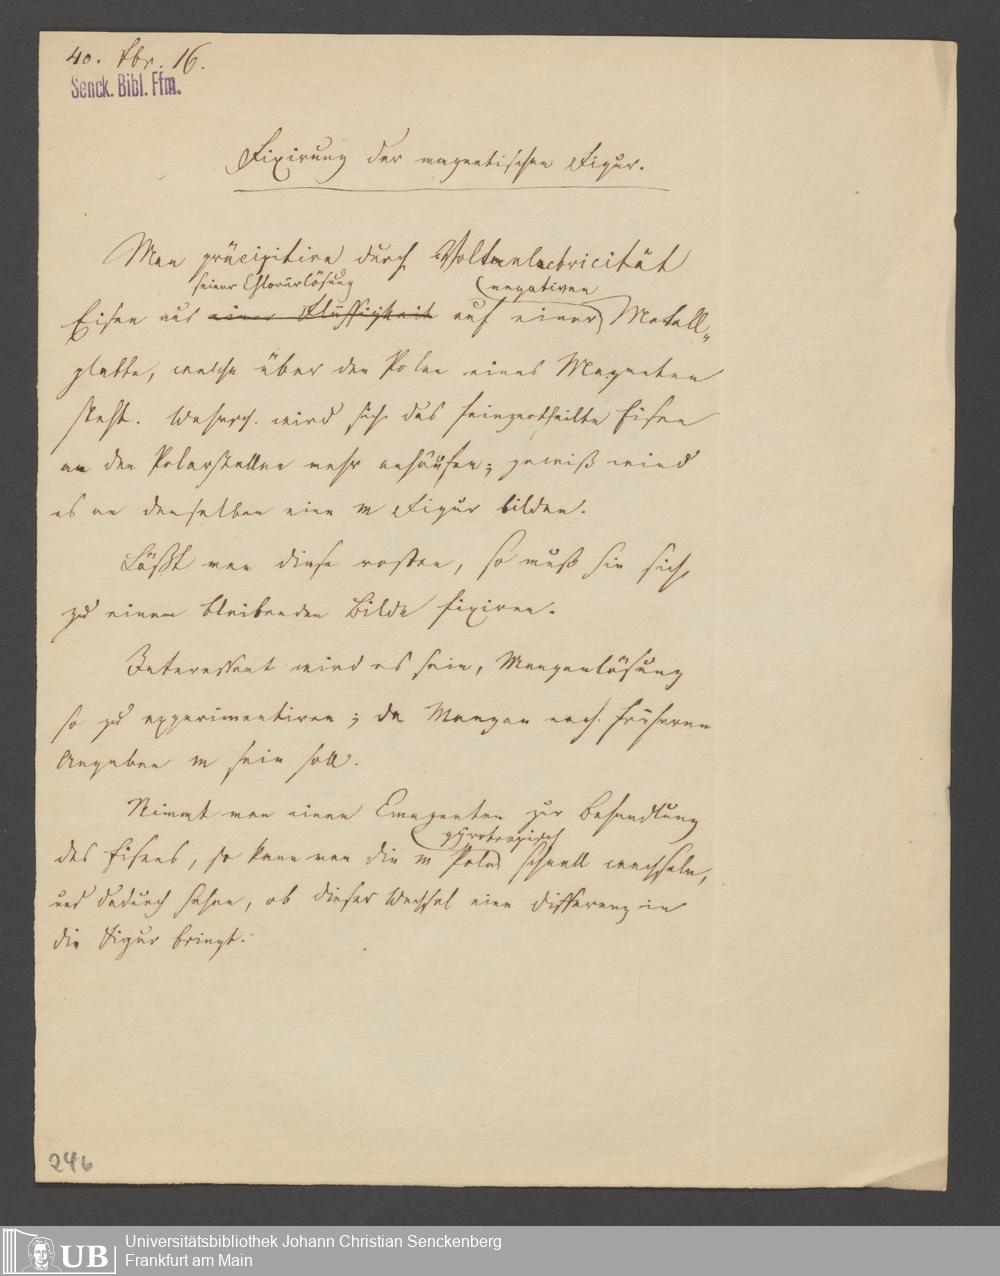 40. Fbr. 16.
Senck. Bibl. Ffm.
Fixirung der magnetischen Figur.
Man präcipitire durch Voltaelectricität
seiner Chlorürlösung negativen
Eisen aus einer Flüssigkeit auf einer Metall„
platte, welche über den Polen eines Magneten
steht. Wahrsch. wird sich das feinzertheilte Eisen
an den Polarstellen mehr anhäufen; gewiß wird
es an denselben eine m Figur bilden.
Läßt man diese rosten, so muß sie sich
zu einem bleibenden Bilde fixiren.
Interessant wird es sein, Manganlösung
so zu experimentiren; da Mangan nach früheren
Angaben m sein soll.
Nimmt man einen Emagneten zur Behandlung
gyrotropisch
des Eisens, so kann man die m Pole schnell wechseln,
und dadurch sehen, ob dieser Wechsel eine Differenz in
die Figur bringt.
246
UB
Universitätsbibliothek Johann Christian Senckenberg
Frankfurt am Main